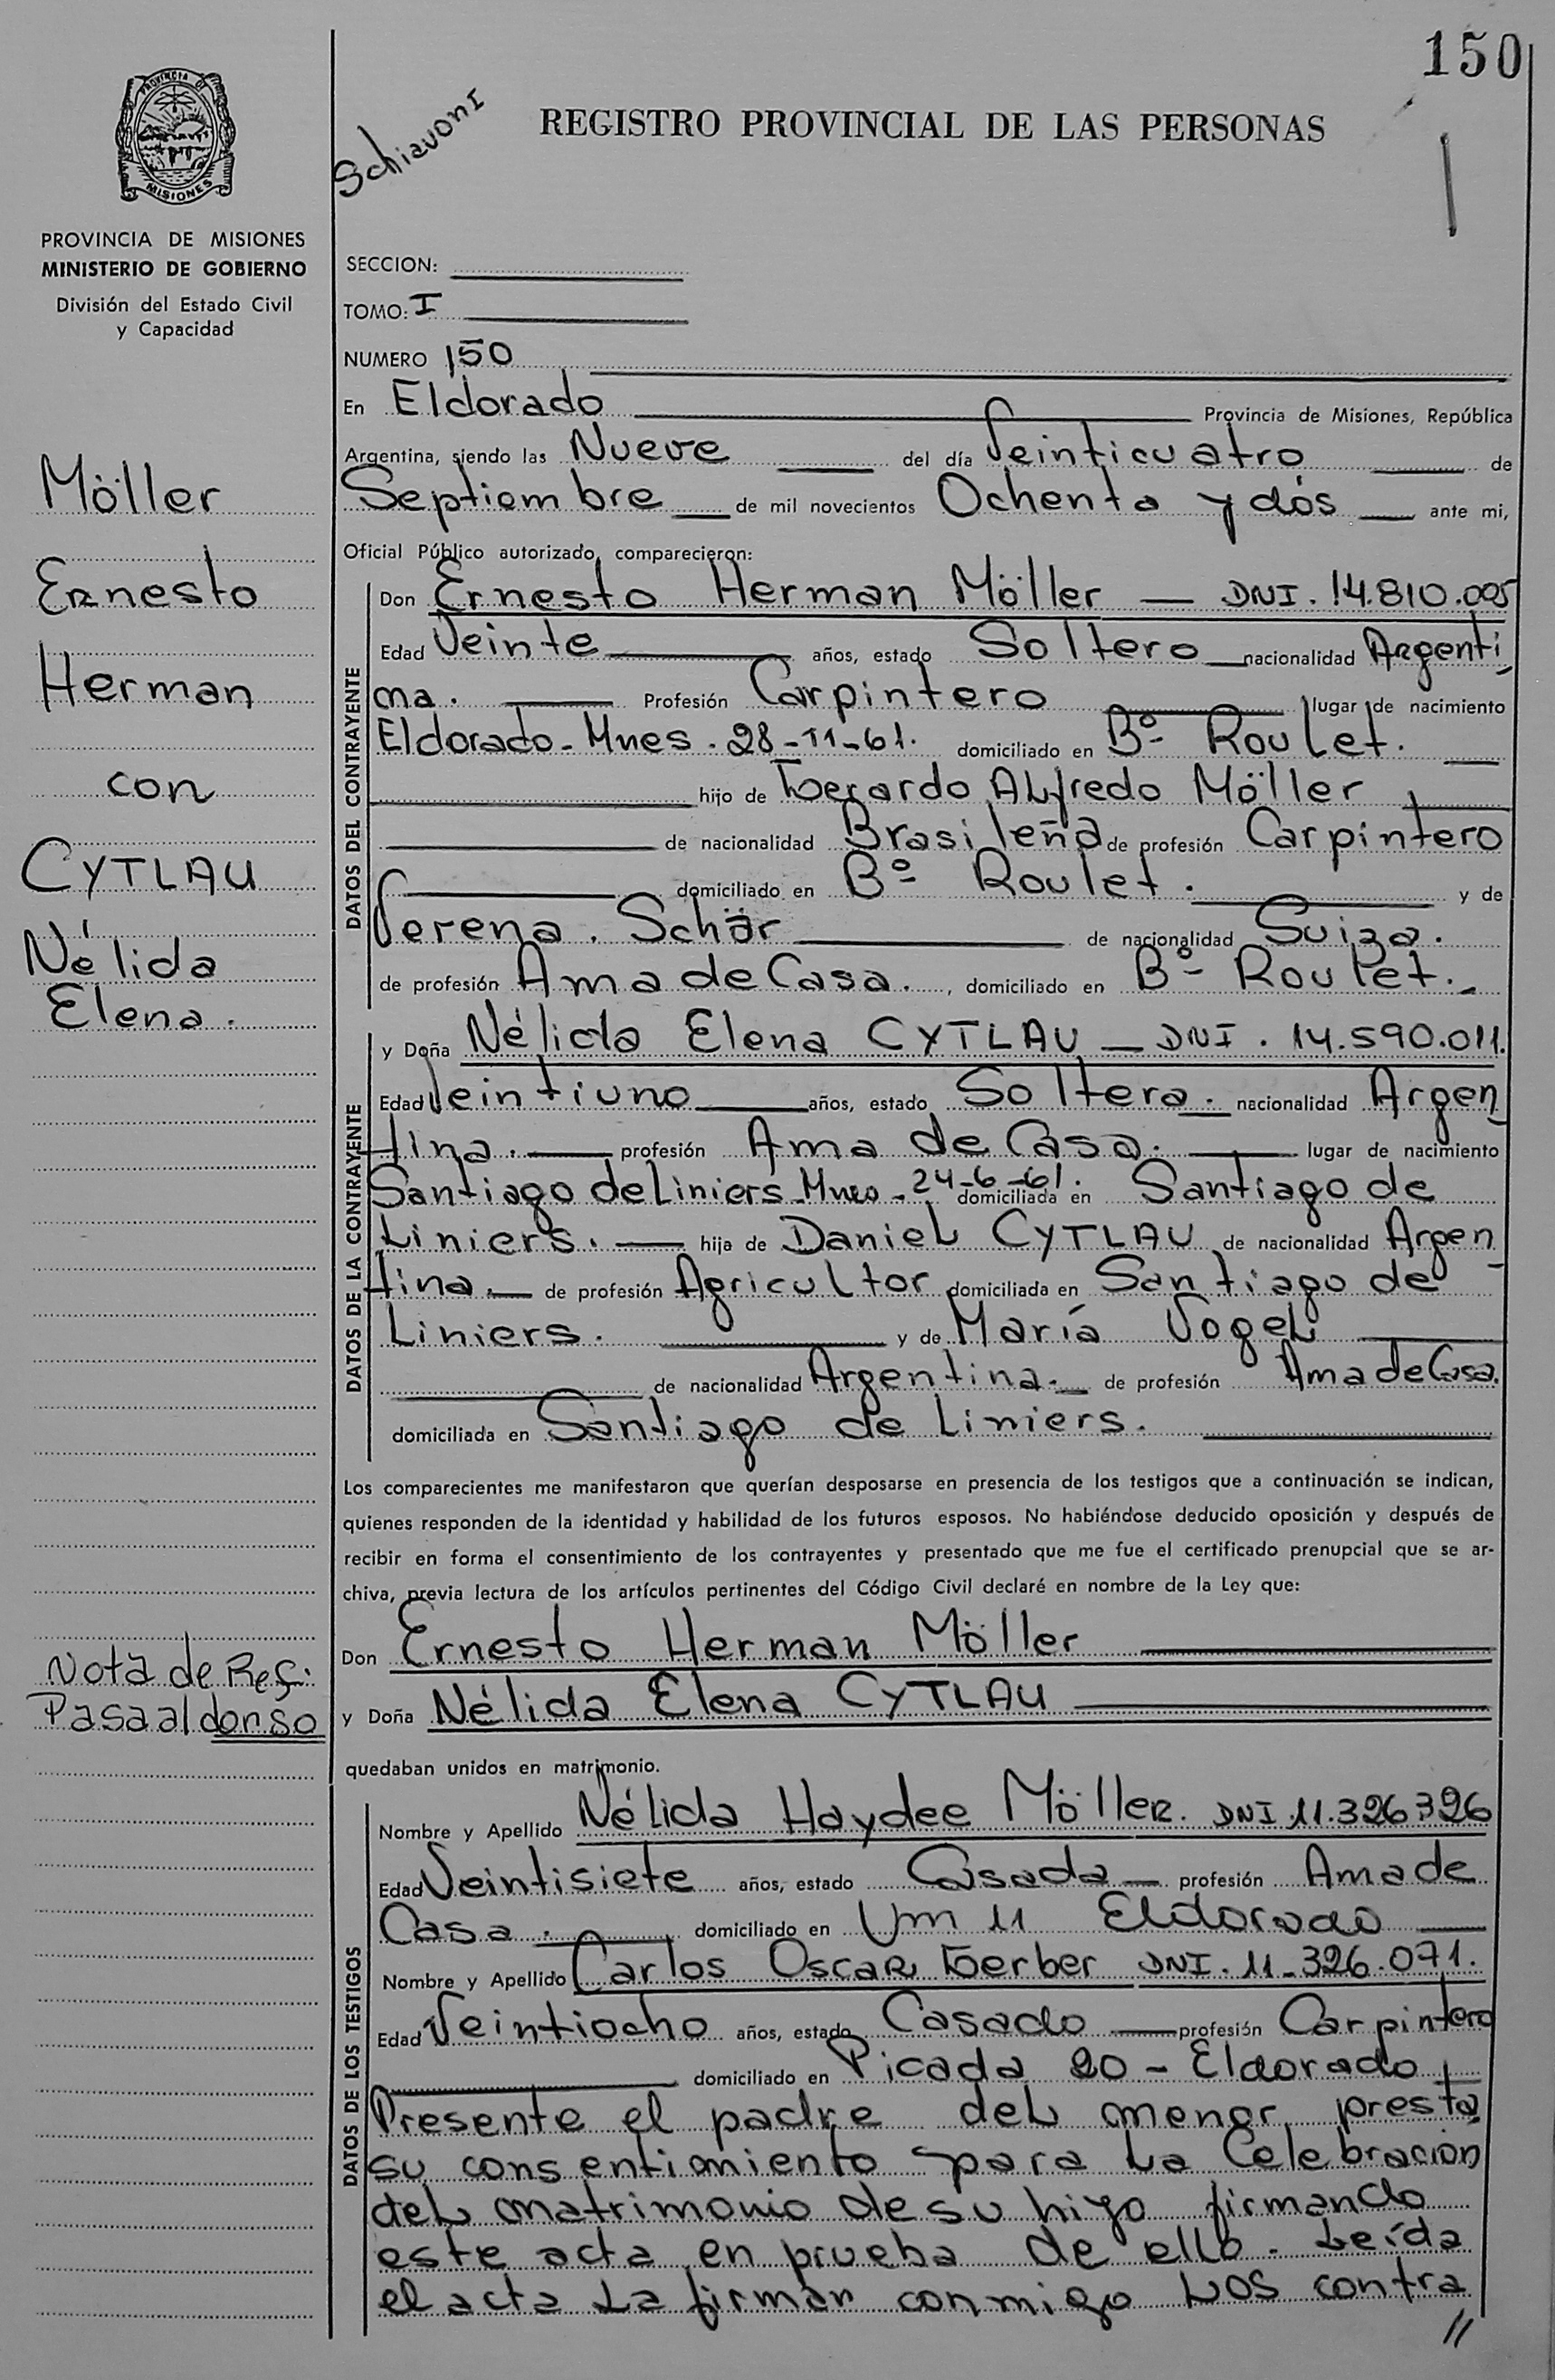 150
PROVINCIA DE
MISIONES
Schiavoni
REGISTRO PROVINCIAL DE LAS PERSONAS
PROVINCIA DE MISIONES
MINISTERIO DE GOBIERNO
División del Estado Civil
y Capacidad
SECCION:
TOMO: I
NUMERO 150
En Eldorado Provincia de Misiones, República
Argentina, siendo las Nueve del día Veinticuatro de
Septiembre de mil novecientos Ochenta y dós ante mi,
Oficial Público autorizado, comparecieron:
Möller
Ernesto
Herman
con
CYTLAU
Nélida
Elena.
DATOS DEL CONTRAYENTE
Don Ernesto Herman Möller — DNI. 14.810.005
Edad Veinte años, estado Soltero nacionalidad Argenti
na. Profesión Carpintero lugar de nacimiento
Eldorado - Mnes. 28-11-61. domiciliado en Bº Roulet.
hijo de Gerardo ALfredo Möller
de nacionalidad Brasileña de profesión Carpintero
domiciliado en Bº Roulet. y de
Verena. Schär de nacionalidad Suiza.
de profesión Ama de Casa., domiciliado en Bº Roulet.
DATOS DE LA CONTRAYENTE
y Doña Nélida Elena CYTLAU — DNI. 14.590.011.
Edad Veintiuno años, estado Soltera. nacionalidad Argen
tina. profesión Ama de Casa. lugar de nacimiento
Santiago de Liniers Mnes - 24-6-61. domiciliada en Santiago de
Liniers. — hija de DanieL CYTLAU de nacionalidad Argen
tina. — de profesión AgricuLtor domiciliada en Santiago de
Liniers. y de María VogeL
de nacionalidad Argentina. de profesión Ama de Casa.
domiciliada en Santiago de Liniers.
Los comparecientes me manifestaron que querían desposarse en presencia de los testigos que a continuación se indican,
quienes responden de la identidad y habilidad de los futuros esposos. No habiéndose deducido oposición y después de
recibir en forma el consentimiento de los contrayentes y presentado que me fue el certificado prenupcial que se ar-
chiva, previa lectura de los artículos pertinentes del Código Civil declaré en nombre de la Ley que:
Don Ernesto Herman Möller
y Doña Nélida Elena CYTLAU
quedaban unidos en matrimonio.
Nota de Ref:
Pasa al dorso
DATOS DE LOS TESTIGOS
Nombre y Apellido Nélida Haydee Möller. DNI 11.326326
Edad Veintisiete años, estado Casada — profesión Ama de
Casa. domiciliado en Km 11 Eldorado
Nombre y Apellido Carlos Oscar Gerber DNI. 11-326.071.
Edad Veintiocho años, estado Casado — profesión Carpintero
domiciliado en Picada 20 - Eldorado
Presente el padre deL menor, presta
su consentimiento para La Celebración
deL matrimonio de su hijo firmando
este acta en prueba de ello. Leída
el acta La firman conmigo Los contra
//